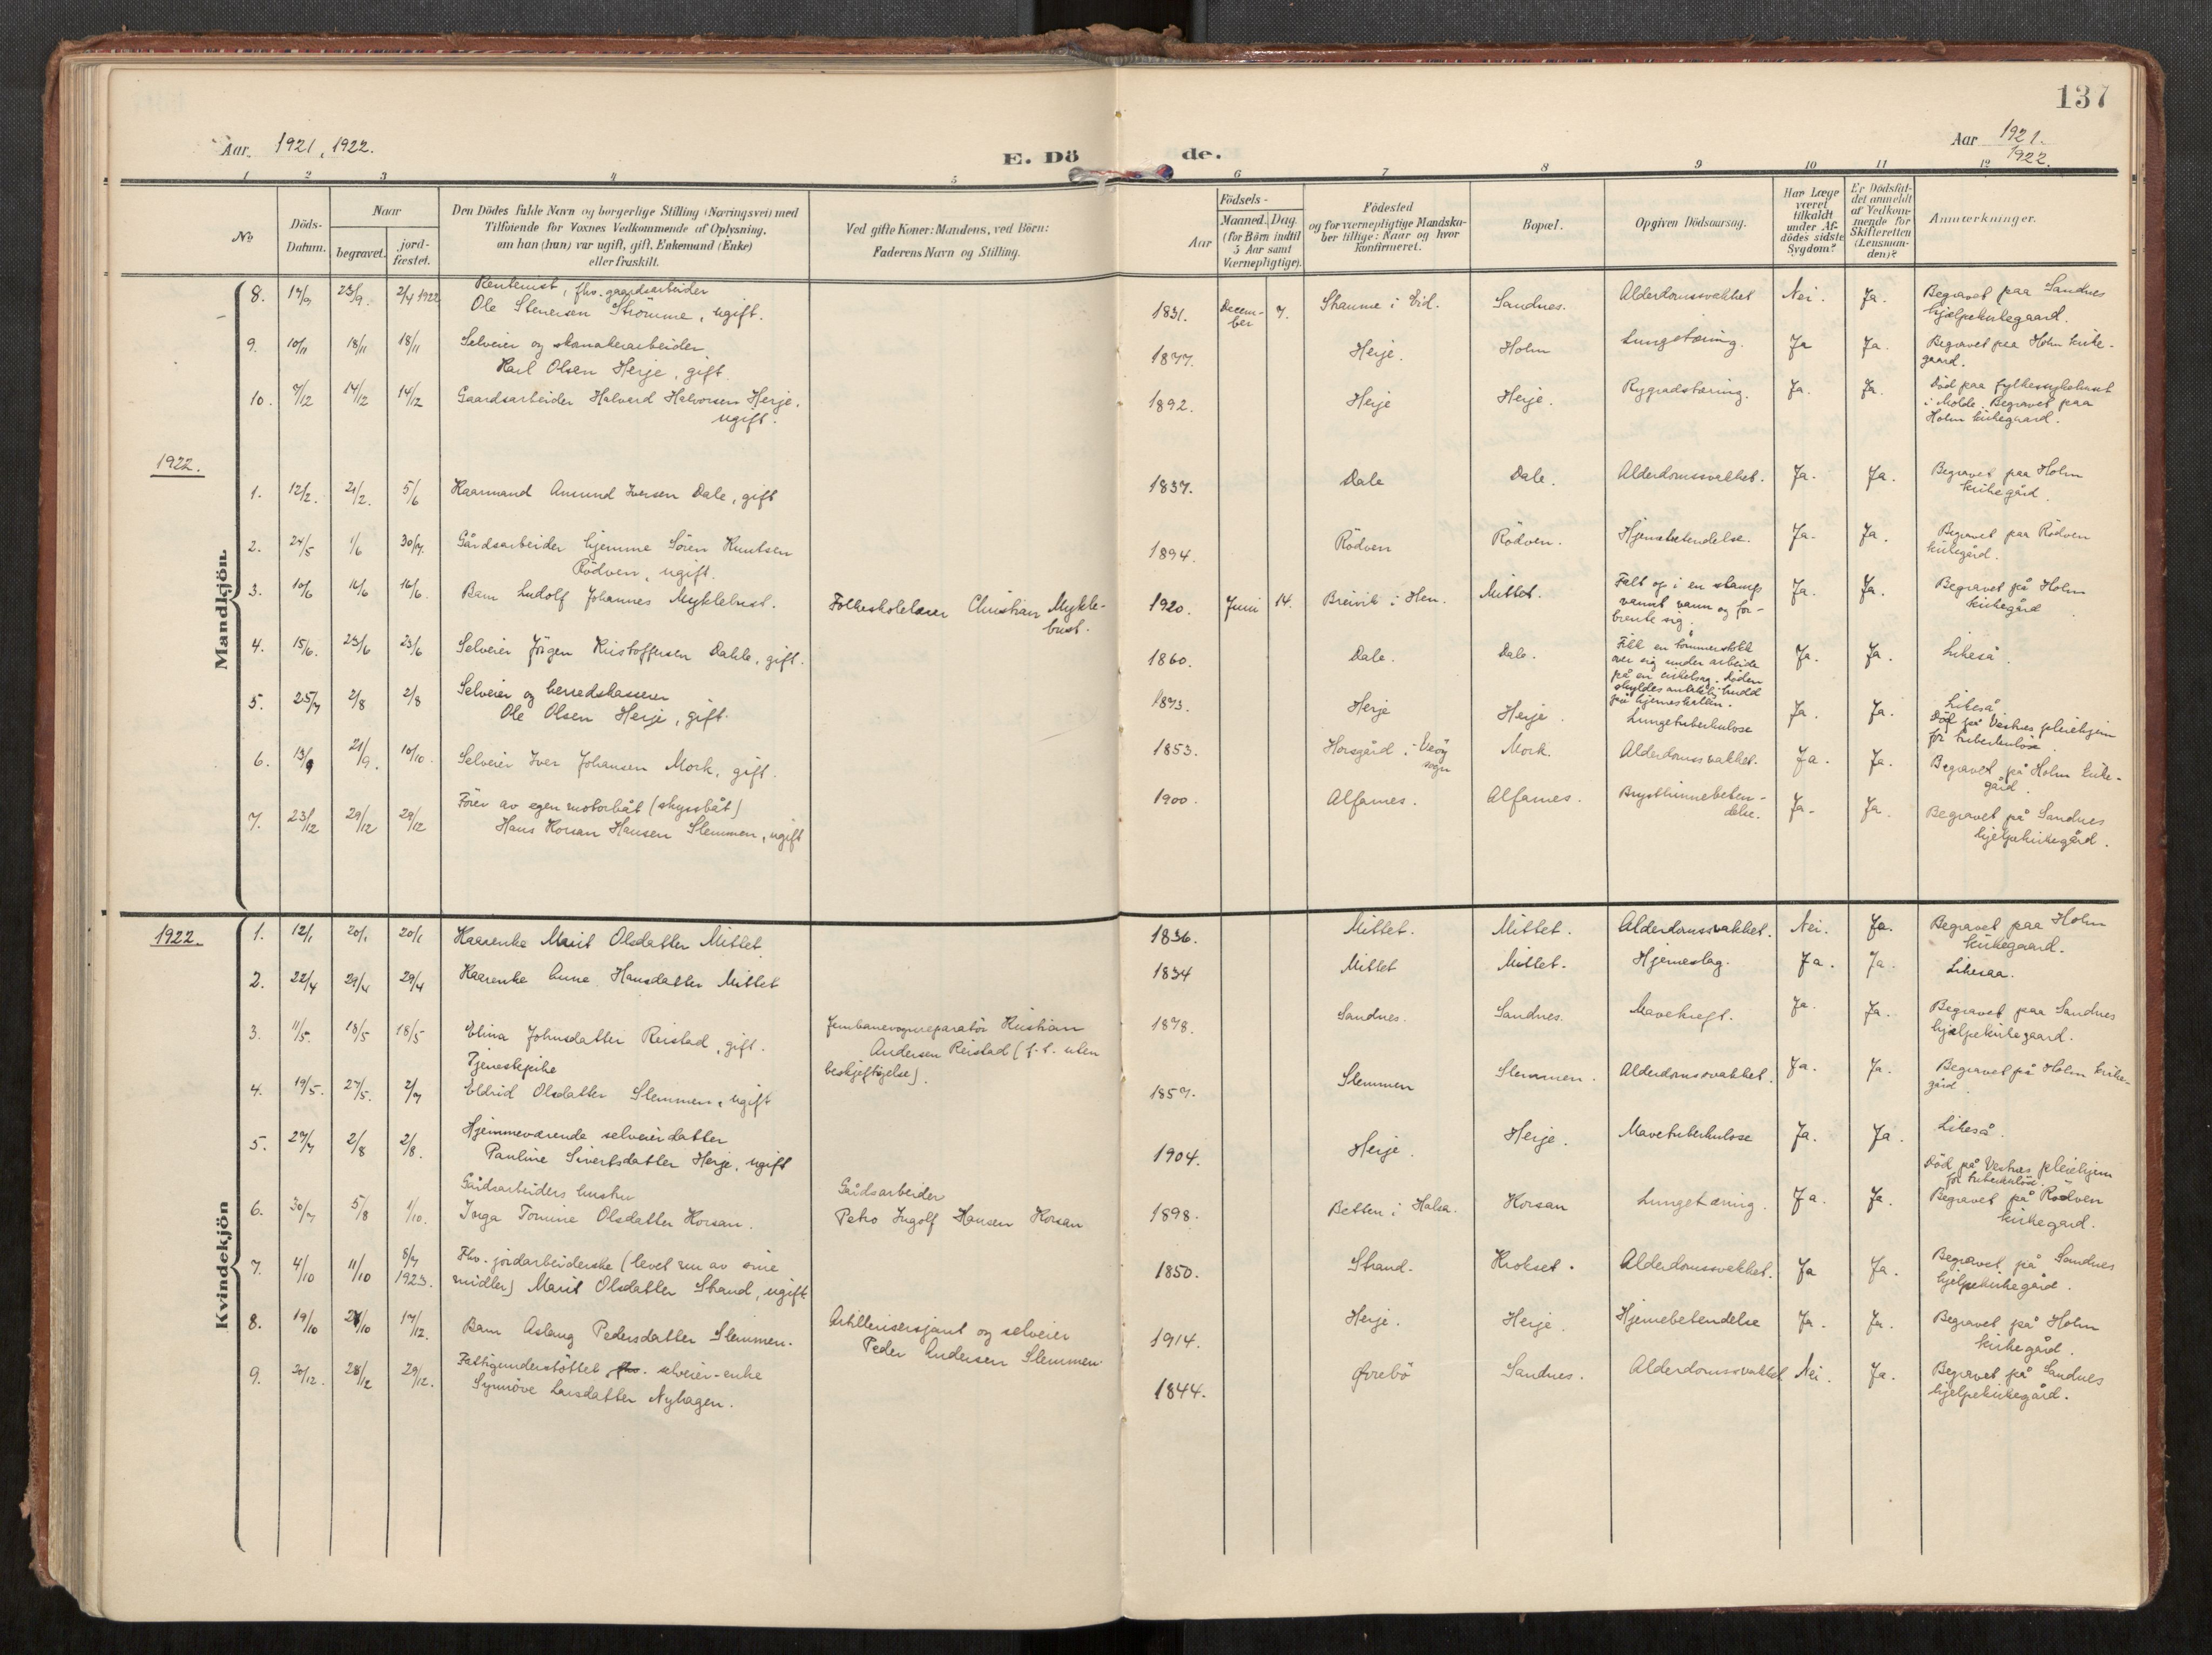 137
Aar. 1921, 1922.
E. Dö
de.
Aar 1921.
1922.
1 2 3 4 5 6 7 8 9 10 11 12
No
Döds-
Datum.
Naar
begravet.
jord-
fæstet.
Den Dödes fulde Navn og borgerlige Stilling (Næringsvei) med
Tilföiende for Voxnes Vedkommende af Oplysning,
om han (hun) var ugift, gift, Enkemand (Enke)
eller fraskilt.
Ved gifte Koner: Mandens, ved Börn:
Faderens Navn og Stilling.
Aar
Födsels-
Maaned. Dag.
(for Börn indtil
5 Aar samt
Værnepligtige).
Födested
og for værnepligtige Mandska-
ber tillige: Naar og hvor
konfirmeret.
Bopæl.
Opgiven Dödsaarsag.
Har Læge
været
tilkaldt
under Af-
dödes sidste
Sygdom?
Er Dödsfal-
det anmeldt
af Vedkom-
mende for
Skifteretten
(Lensman-
den)?
Anmærkninger.
Mandkjön.
8. 17/9 23/9. 2/4 1922 Rentenist, fhv. gaardsarbeider
Ole Stenersen Strömme, ugift.
1831. Decem-
ber 7. Staume i Eid. Sandnes. Alderdomssvakhet Nei. Ja. Begravet paa Sandnes
hjælpekirkegaard.
9. 10/11 18/11 18/11 Selveier og skomakerarbeider
Karl Olsen Herje, gift.
1877. Herje. Holm Lungetæring. Ja Ja. Begravet paa Holm kirke-
gaard.
10. 7/12 14/12 14/12 Gaardsarbeider Halvard Halvorsen Herje,
ugift.
1892. Herje Herje. Rygradstæring. Ja. Ja. Död paa fylkessykehuset
i Molde. Begravet paa
Holm kirkegaard.
1922.
1. 12/2. 21/2. 5/6 Kaarmand Amund Iversen Dale, gift
1837. Dale Dale. Alderdomssvakhet. Ja. Ja. Begravet paa Holm
kirkegård.
2. 24/5 1/6 30/7. Gårdsarbeider hjemme Sören Knutsen
Rödven, ugift.
1894. Rödven Rödven. Hjernebetendelse. Ja. Ja. Begravet paa Rödven
kirkegård.
3. 10/6 16/6 16/6. Barn Ludolf Johannes Myklebust.
Folkeskolelærer Christian Mykle-
bust.
1920. Juni 14. Breivik i Hen. Mittet. Falt op i en stamp
varmt vann og for-
brente sig. Ja. Ja. Begravet på Holm
kirkegård
4. 15/6. 23/6 23/6 Selveier Jörgen Kristoffersen Dahle, gift.
1860. Dale. Dale. Fikk en tömmerstokk
over sig under arbeide
på en cirkelsag. Döden
skyldes antakelig brudd
på hjerneskallen. Ja. Ja. Likeså.
5. 25/7 2/8 2/8 Selveier og herredskasserer
Ole Olsen Herje, gift.
1873. Herje Herje. Lungetuberkulose Ja. Ja. Likeså.
Död på Vestnes pleiehjem
for tuberkulose.
6. 13/9 21/9. 10/10. Selveier Iver Johansen Mork, gift.
1853. Horsgård i Veöy
sogn Mork. Alderdomssvakhet. Ja. Ja. Begravet på Holm kirke-
gård.
7. 23/12 29/12 29/12 Förer av egen motorbåt (skyssbåt)
Hans Korsan Hansen Slemmen, ugift
1900. Alfarnes. Alfarnes. Brysthinnebeten-
delse. Ja. Ja. Begravet på Sandnes
hjelpekirkegård.
Kvindekjön
1922.
1. 12/1 20/1 20/1 Kaarenke Marit Olsdatter Mittet.
1836. Mittet. Mittet. Alderdomssvakhet. Nei. Ja. Begravet paa Holm
kirkegaard.
2. 22/4 29/4 29/4 Kaarenke Anne Hansdatter Mittet
1834 Mittet Mittet. Hjerneslag. Ja. Ja. Likesaa.
3. 11/5. 18/5 18/5 Elina Johnsdatter Reistad, gift.
Jernbanevognreparatör Kristian
Andersen Reistad (f. t. uten
beskjeftigelse).
1878. Sandnes. Sandnes. Mavekreft. Ja. Ja. Begravet paa Sandnes
hjælpekirkegaard.
4. 19/5. 27/5. 2/7 Tjenestepike
Eldrid Olsdatter Slemmen, ugift
1857. Slemmen Slemmen. Alderdomssvakhet. Ja. Ja. Begravet på Holm kirke-
gård
5. 27/7 2/8 2/8. Hjemmeværende selveierdatter
Pauline Sivertsdatter Herje, ugift
1904. Herje. Herje. Mavetuberkulose Ja. Ja. Likeså.
Död på Vestnes pleiehjem
for tuberkulöse.
6. 30/7 5/8 1/10. Gårdsarbeiders hustru
Inga Tomine Olsdatter Korsan.
Gårdsarbeider
Petro Ingolf Hansen Korsan
1898. Betten i Halsa. Korsan Lungetæring. Ja. Ja. Begravet på Rödven
kirkegard.
7. 4/10 11/10 8/7
1923. Fhv. jordarbeiderske (levet nu av sine
midler) Marit Olsdatter Strand, ugift
1850. Strand. Krokset. Alderdomssvakhet. Ja Ja. Begravet på Sandnes
hjelpekirkegård.
8. 19/10 27/10 17/12. Barn Aslaug Pedersdatter Slemmen.
Artillerisersjant og selveier
Peder Andersen Slemmen.
1914. Herje. Herje. Hjernebetendelse Ja. Ja. Begravet på Holm
kirkegård.
9. 20/12. 28/12 29/12. Fattigunderstöttet fhv. selveier-enke
Synnöve Larsdatter Nyhagen.
1844. Örebö Sandnes. Alderdomssvakhet Nei. Ja. Begravet på Sandnes
hjelpekirkegård.